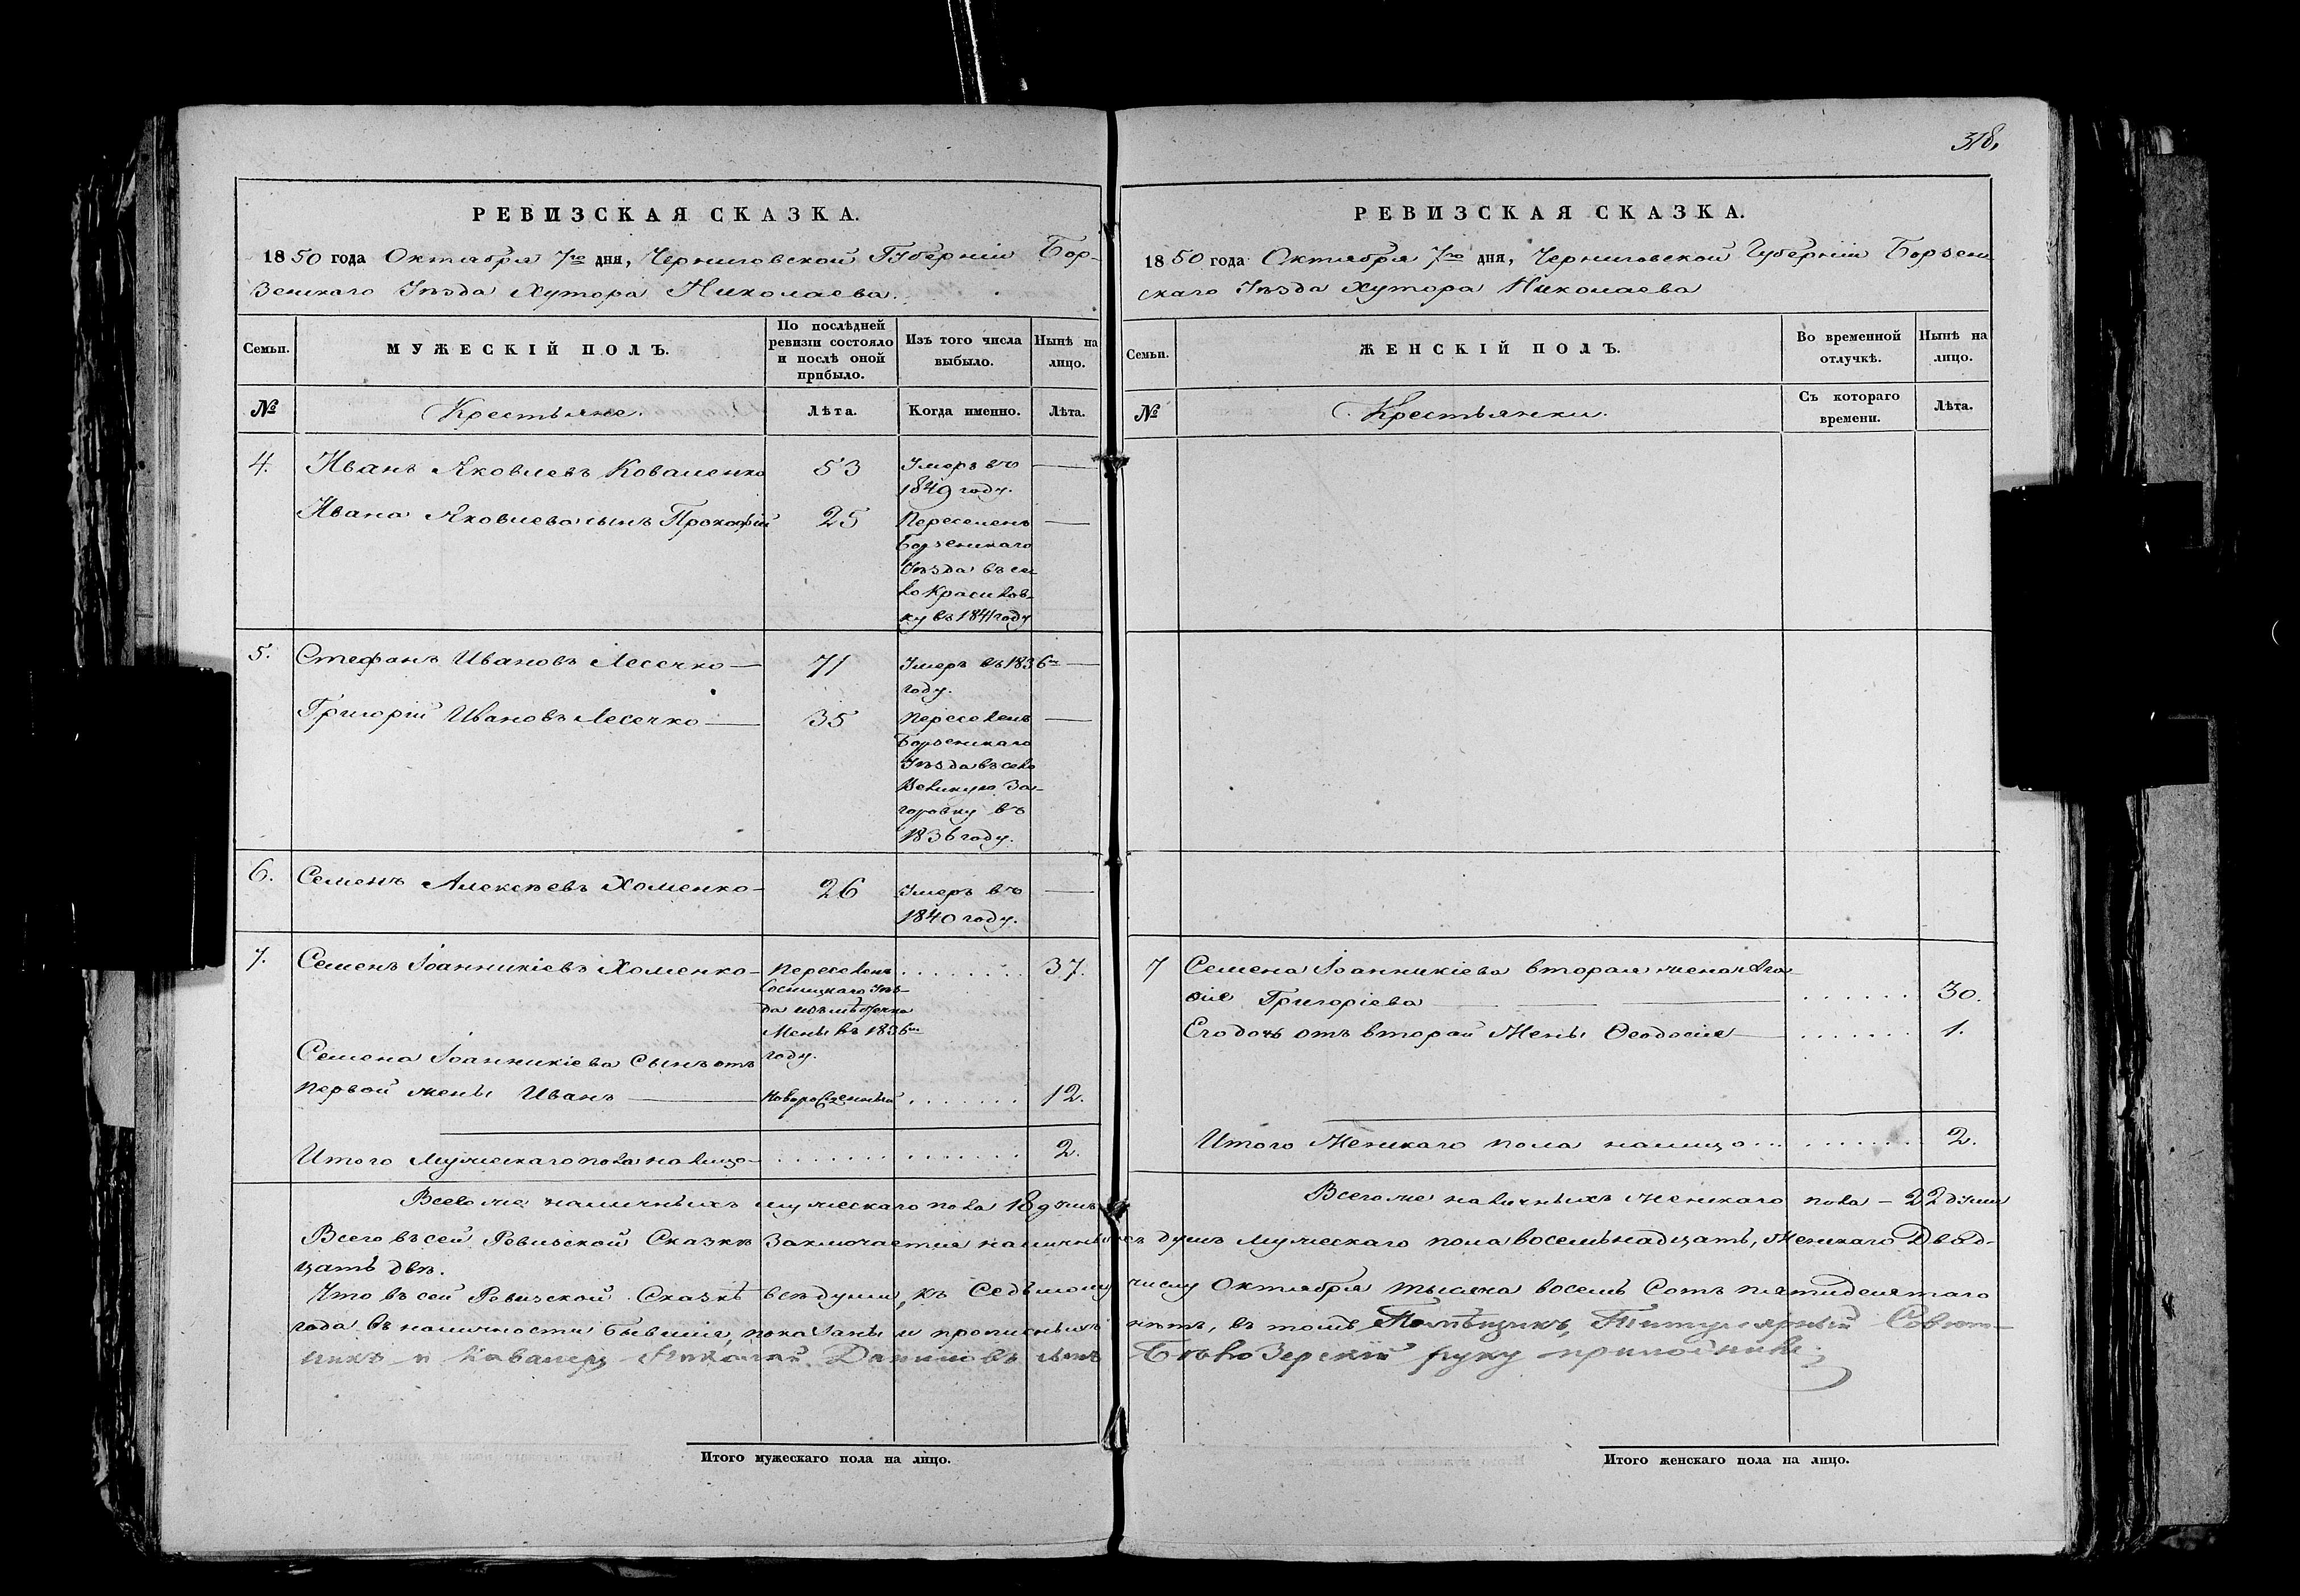 318.
РЕВИЗСКАЯ СКАЗКА.
1850 года Октября 7го дня, Черниговской Губерніи Бор-
зенскаго Уѣзда Хутора Николаева.
Семьи.
МУЖЕСКІЙ ПОЛЪ.
По послѣдней ревизіи состояло и послѣ оной прибыло.
Изъ того числа выбыло.
Нынѣ на лицо.
№
Крестьяне.
Лѣта.
Когда именно.
Лѣта.
4. Иванъ Яковлевъ Коваленко 53 Умеръ въ —
1849 году.
Ивана Яковлева сынъ Прокофій 25 Переселенъ —
Борзенскаго
Уѣзда въ се
ло Красилов-
ку въ 1841 году
5. Стефанъ Ивановъ Лесечко — 71 Умеръ въ 1836м —
году.
Григорій Ивановъ Лесечко — 35 Переселенъ —
Борзенскаго
Уѣзда въ село
Великую За-
горовку въ
1836 году.
6. Семенъ Алексѣевъ Хоменко- 26 Умеръ въ —
1840 году.
7. Семенъ Іоанникіевъ Хоменко- Переселенъ ........ 37.
Сосницкаго Уѣз-
да изъ мѣстечка
Мены въ 1836м
году.
Семена Іоанникіева Сынъ отъ
первой жены Иванъ — Новорожденный ....... 12.
Итого Мужескаго пола налицо- ....... ....... 2.
Всего же наличныхъ мужескаго пола 18 душъ
РЕВИЗСКАЯ СКАЗКА.
1850 года Октября 7го дня, Черниговской Губерніи Борзен
скаго Уѣзда Хутора Николаева
Семьи.
ЖЕНСКІЙ ПОЛЪ.
Во временной отлучкѣ.
Нынѣ на лицо.
№
Крестьянки.
Съ котораго времени.
Лѣта.
7 Семена Іоанникіева вторая жена Ага-
ѳіе Григоріева — ...... 30.
Его дочь отъ второй Жены Ѳеодосіе — ...... 1.
Итого Женскаго пола налицо... ....... 2.
Всего же наличныхъ женскаго пола – 22 души
Всего въ сей Ревизской Сказкѣ Заключается наличныхъ душъ мужескаго пола восемьнадцать, Женскаго Двад-
цать двѣ.
Что въ сей Ревизской Сказкѣ всѣ души, къ Седьмому числу Октября тысяча восемь Сотъ пятидесятаго
года въ наличности бывшіе, показаны и прописныхъ нѣтъ, въ томъ Помѣщикъ, Титулярный Совѣт-
никъ и Кавалеръ Николай Даниловъ сынъ Бѣлозерскій руку приложилъ.
Итого мужескаго пола на лицо.
Итого женскаго пола на лицо.